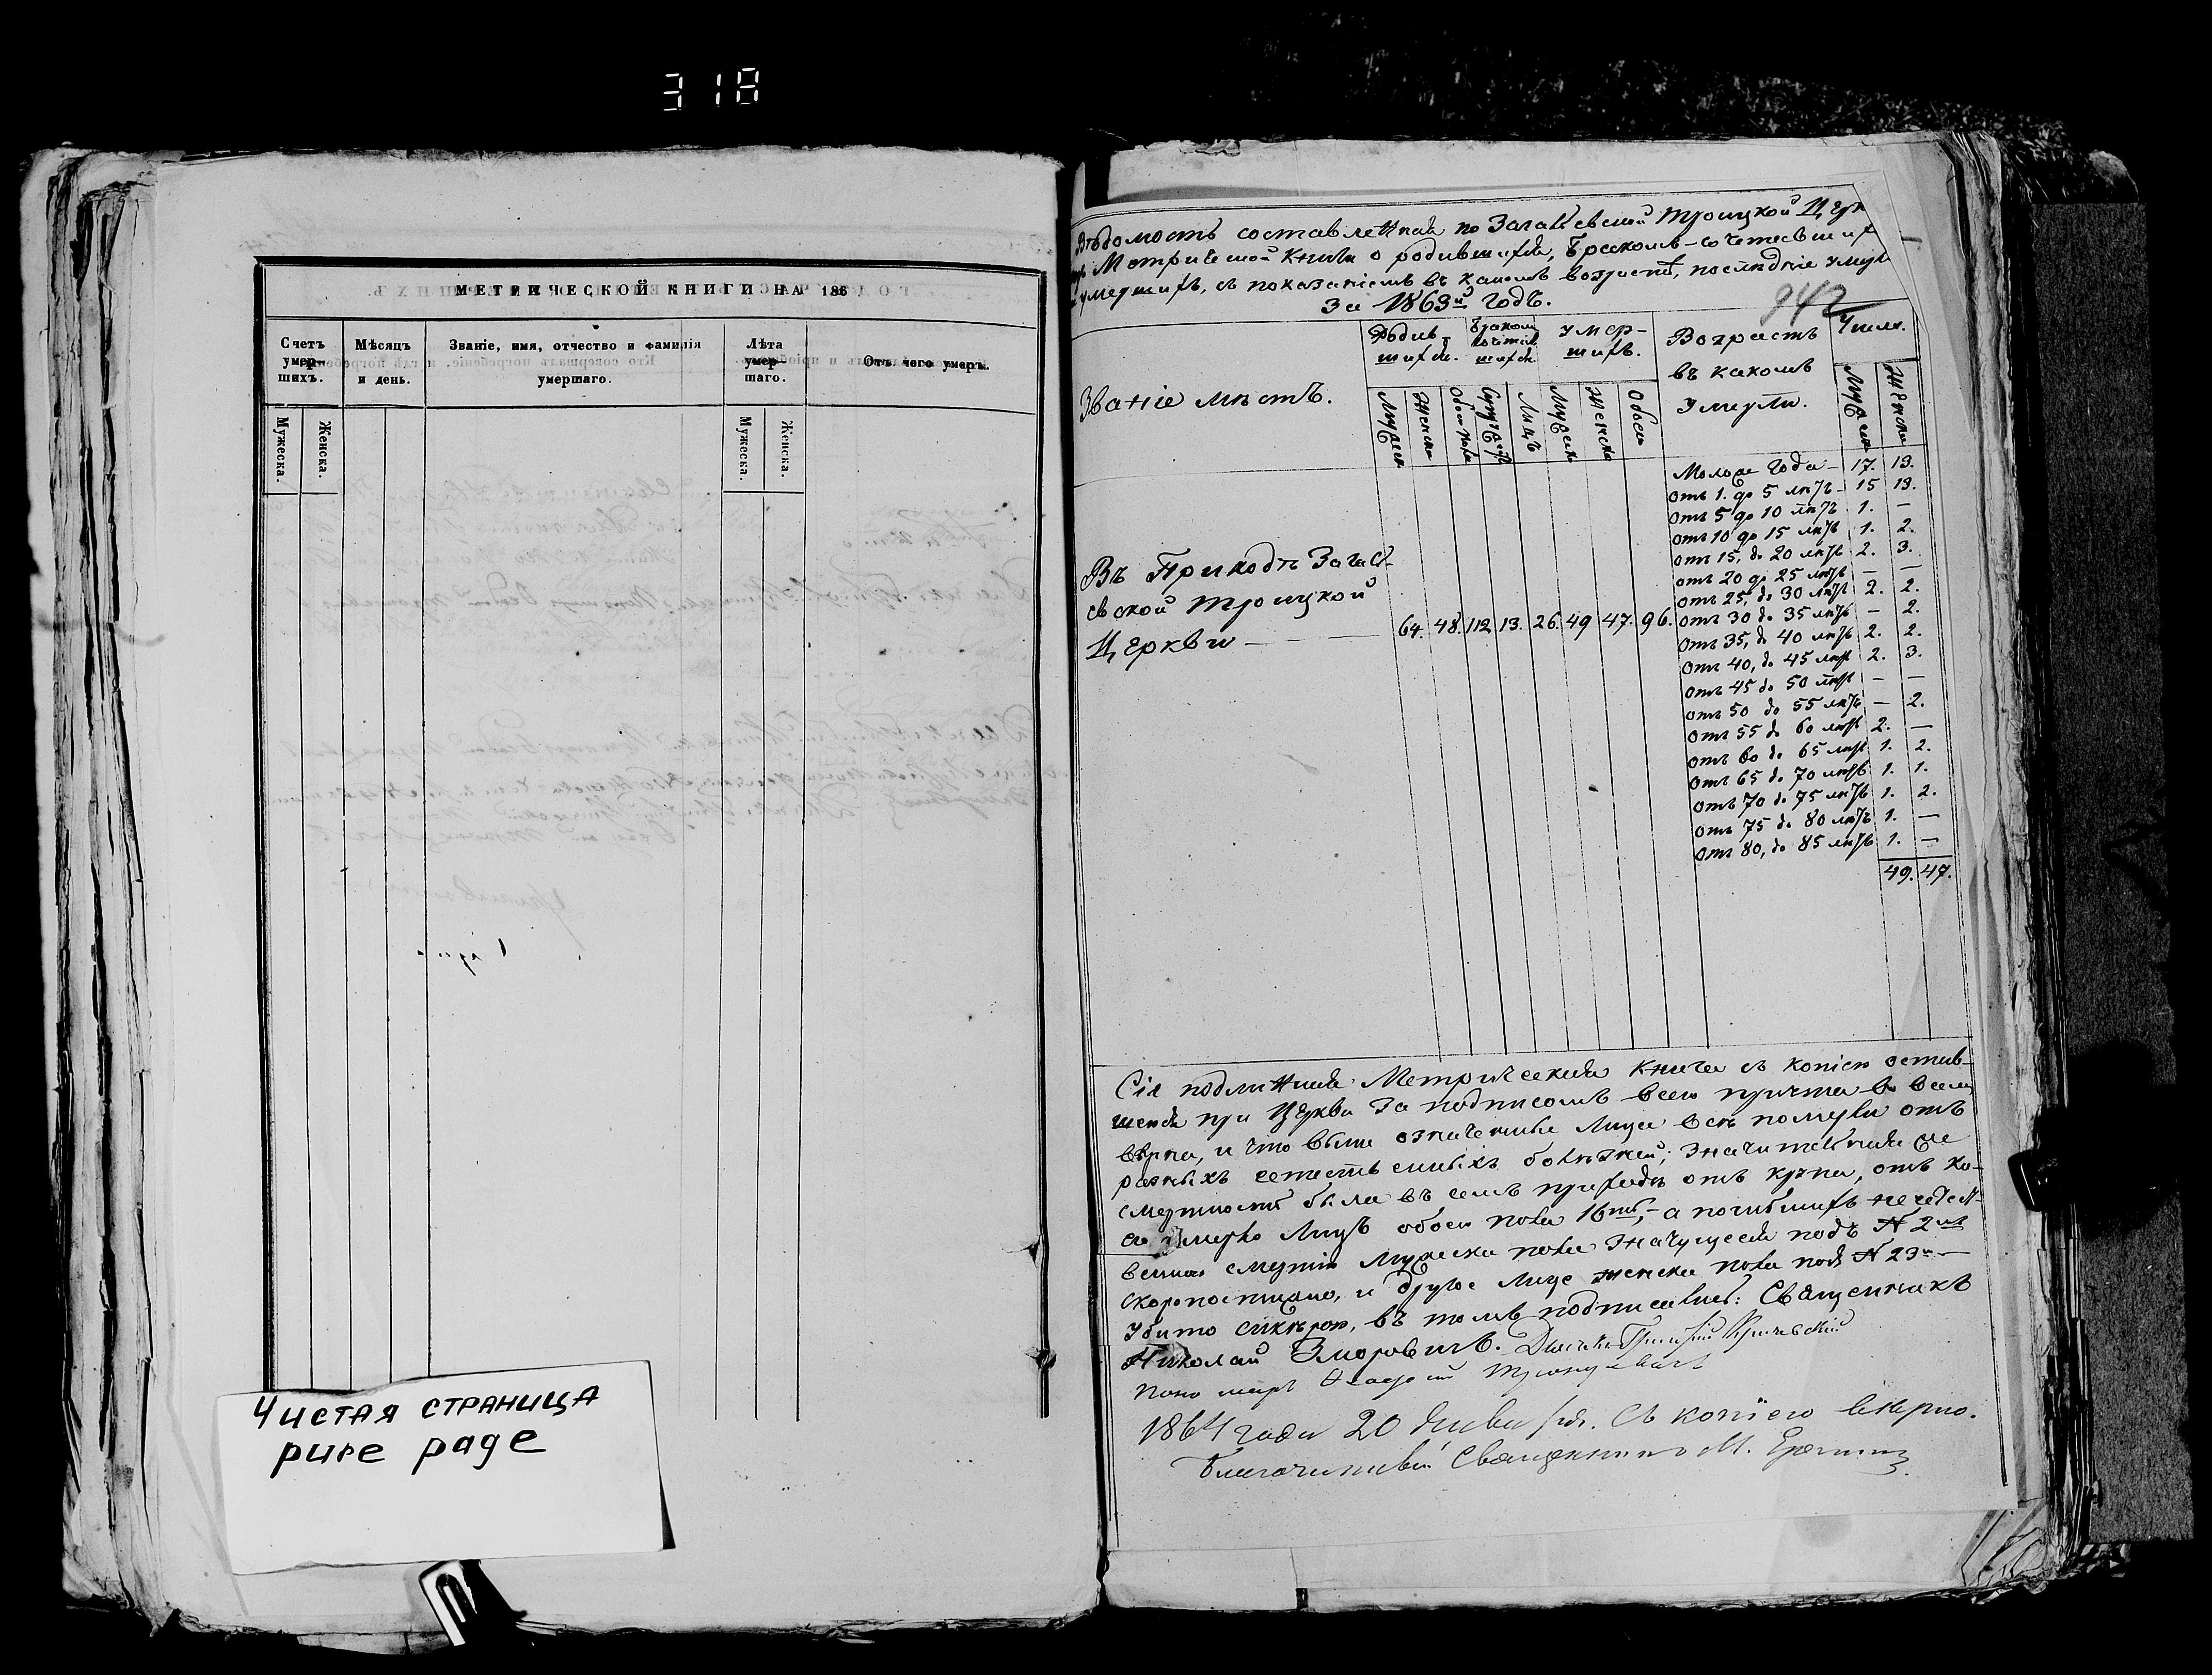 318
МЕТРИЧЕСКОЙ КНИГИ НА 186
Счетъ умер-шихъ.
Мѣсяцъ и день.
Званіе, имя, отчество и фамилія умершаго.
Лѣта умер-шаго.
Отъ чего умеръ.
Мужеска.
Женска.
Мужеска.
Женска.
Чистая страница
pure page
942
Вѣдомость составленная по Загаевской Троицкой Церк
Метрической Книги о родившихся, бракомъ-сочетавших
умершихъ, съ показаніемъ въ какомъ возрастѣ, послѣдніе умер
За 1863й Годъ.
Званіе мѣстъ.
Родив-шихся.
Умер-шихъ.
Возрастъ въ какомъ Умерли.
Число.
Женска
Обоего пола
Лицъ
Женска
Обоего
Моложе Года - 17. 13.
отъ 1. до 5 лѣтъ - 15 13.
отъ 5 до 10 лѣтъ 1. -
отъ 10 до 15 лѣтъ 1. 2.
отъ 15, до 20 лѣтъ 2. 3.
отъ 20 до 25 лѣтъ — —
отъ 25, до 30 лѣтъ 2. 2.
отъ 30 до 35 лѣтъ - 2.
отъ 35, до 40 лѣтъ 2. 2.
отъ 40, до 45 лѣтъ 2. 3.
отъ 45 до 50 лѣтъ — —
отъ 50 до 55 лѣтъ — 2.
отъ 55 до 60 лѣтъ 2. —
отъ 60 до 65 лѣтъ 1. 2.
отъ 65 до 70 лѣтъ 1. 1.
отъ 70 до 75 лѣтъ 1. 2.
отъ 75 до 80 лѣтъ 1. —
отъ 80, до 85 лѣтъ 1. —
49. 47.
Въ Приходѣ Загай-
евской Троицкой
Церкви — 64. 48. 112 13. 26. 49 47. 96.
Сія подлинная Метрическая Книга съ копіею остав-
шеюся при Церкви За подписомъ всего причта во всемъ
вѣрна, и что выше означенные Лица всѣ померли отъ
разныхъ естественныхъ болѣзней; Значительная же
смертность была въ семъ приходѣ отъ крупа, отъ ко-
его умерло Лицъ обоего пола 16ть, - а погибшихъ неестест-
венною смертію Мужеска пола Значущееся подъ N 2мъ
скоропостижно, и другое Лице женска пола подъ N 23мъ —
Убито, въ томъ подписались: Священникъ
Николай Дьячокъ Григорій
Пономарь
1864 года 20 Генваря дня. Съ копіею вѣрно.
Благочинный Священникъ М.